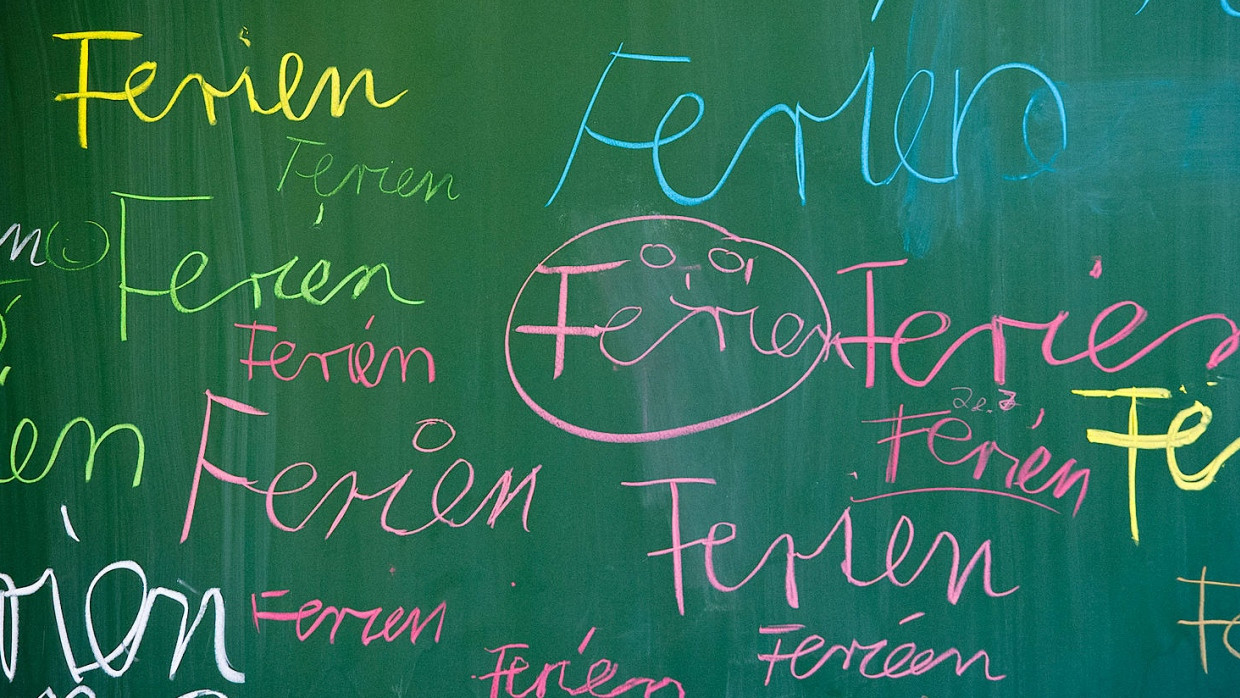 Ferien
Ferien
Ferien
Ferien
Ferien
Ferien
Ferien
Ferie
Ferien
Fe
en
Ferien
Ferien
rien
Ferien
Ferien
Ferien